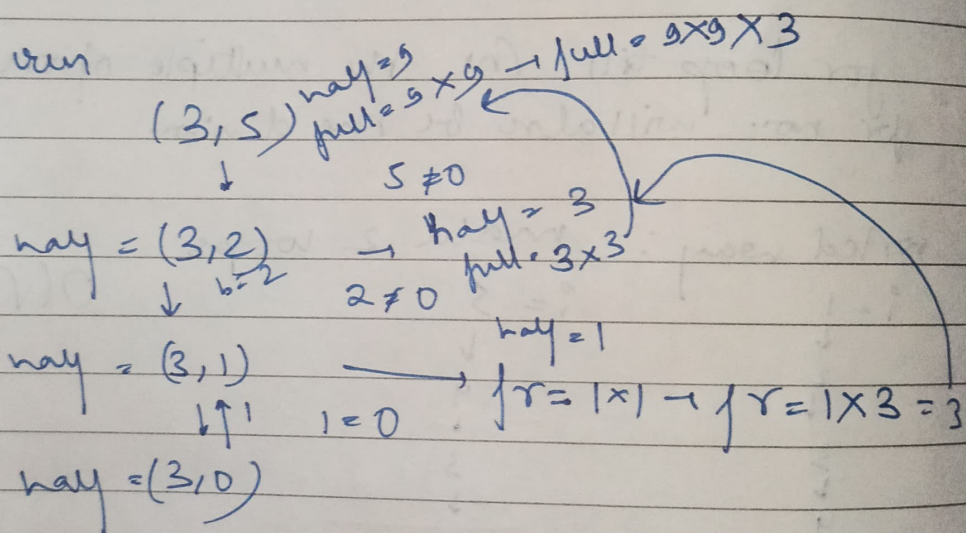 run
half = 9 → full = 9×9×3
(3,5) full = 9×9
↓ 5 ≠ 0
half = (3,2) → half = 3
b=2 full = 3×3
↓ 2 ≠ 0
half = 1
half = (3,1) → fr = 1×1 → fr = 1×3 = 3
↓↑ 1 1 = 0
half = (3,0)